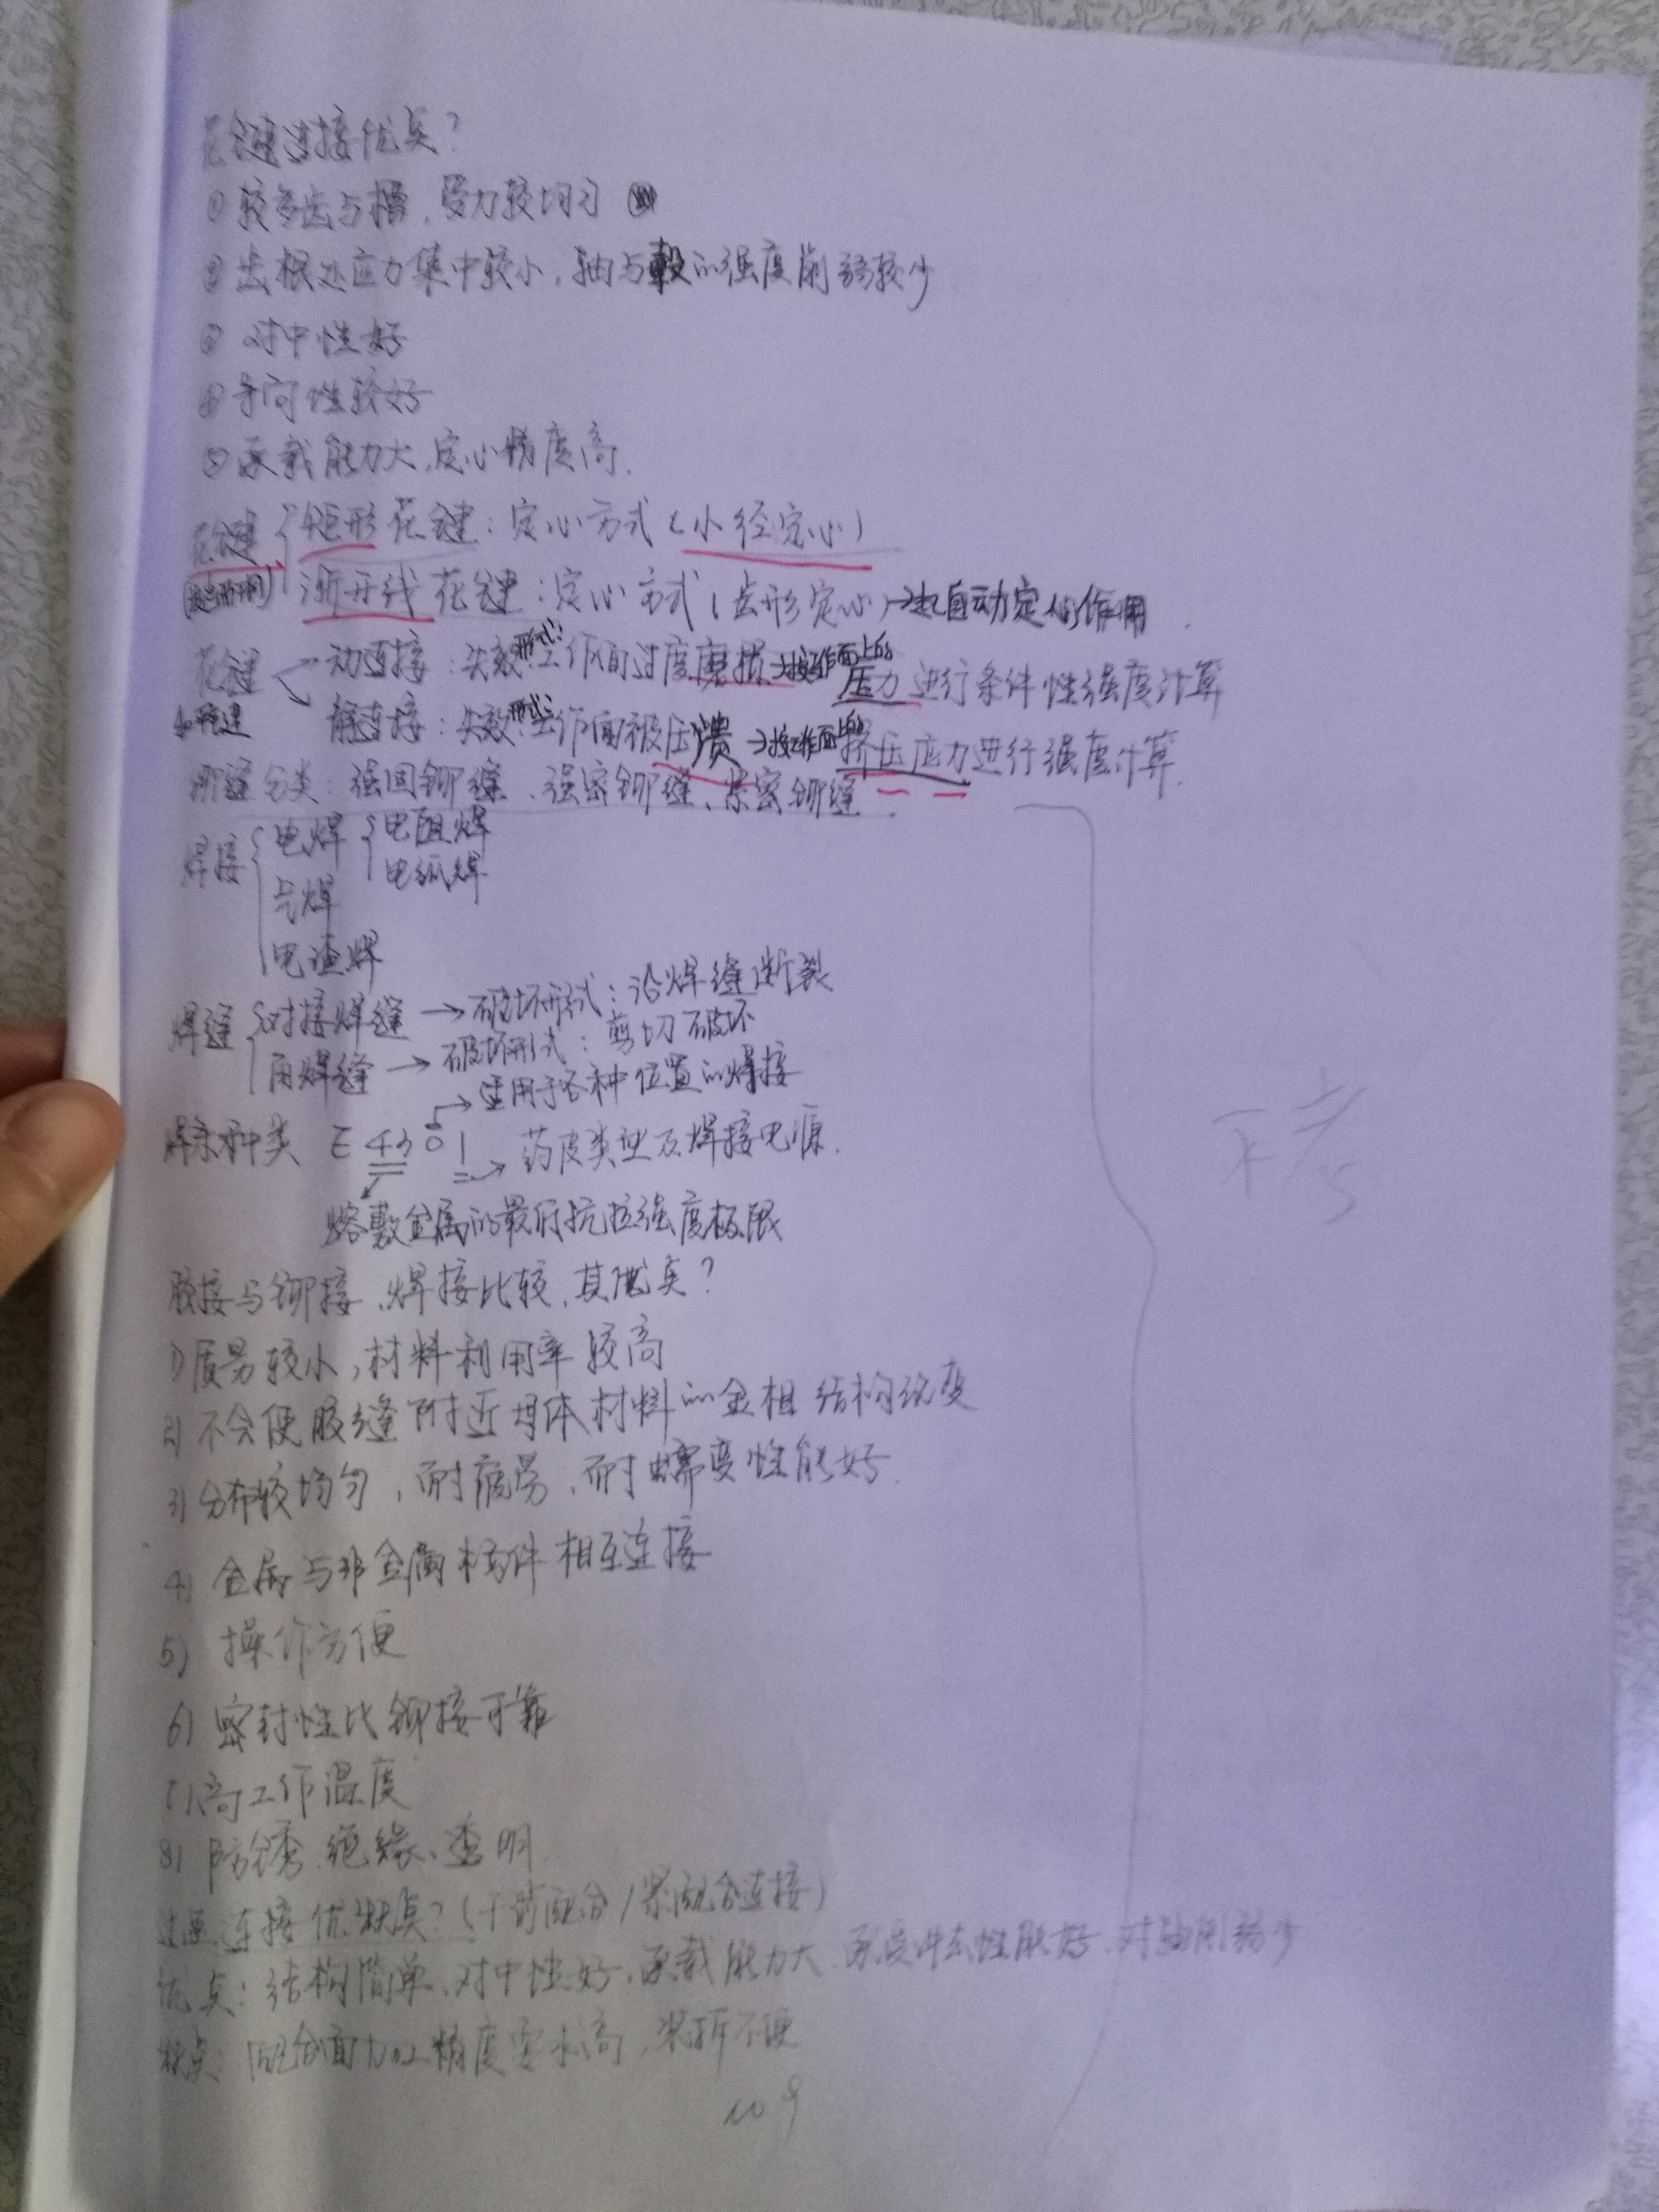 花键连接优点?
① 较多齿与槽,受力较均匀
② 齿根处应力集中较小,轴与毂的强度削弱较少
③ 对中性好
④ 导向性较好
⑤ 承载能力大,定心精度高.
花键 矩形花键:定心方式(小径定心)
渐开线花键:定心方式(齿形定心)→起自动定心作用.
花键 动连接:失效形式:工作面过度磨损→按工作面上的压力进行条件性强度计算
静连接:失效形式:工作面被压溃→按工作面上的挤压应力进行强度计算.
铆缝分类:强固铆缝、强密铆缝、紧密铆缝.
焊接 电焊 电阻焊
电弧焊
气焊
电渣焊
焊缝 对接焊缝→破坏形式:沿焊缝断裂
角焊缝→破坏形式:剪切破坏
→适用于各种位置的焊接
焊条种类 E 43 0 1 → 药皮类型及焊接电源.
熔敷金属的最低抗拉强度极限
胶接与铆接、焊接比较,其优点?
1) 质量较小,材料利用率较高
2) 不会使胶缝附近母体材料的金相结构改变
3) 分布较均匀,耐疲劳、耐蠕变性能好.
4) 金属与非金属构件相互连接
5) 操作方便
6) 密封性比铆接可靠
7) 高工作温度
8) 防锈、绝缘、透明.
过盈连接优缺点?(干涉配合/紧配合连接)
优点:结构简单、对中性好、承载能力大、承受冲击性能好、对轴削弱少
缺点:配合面加工精度要求高,装拆不便
不考
109